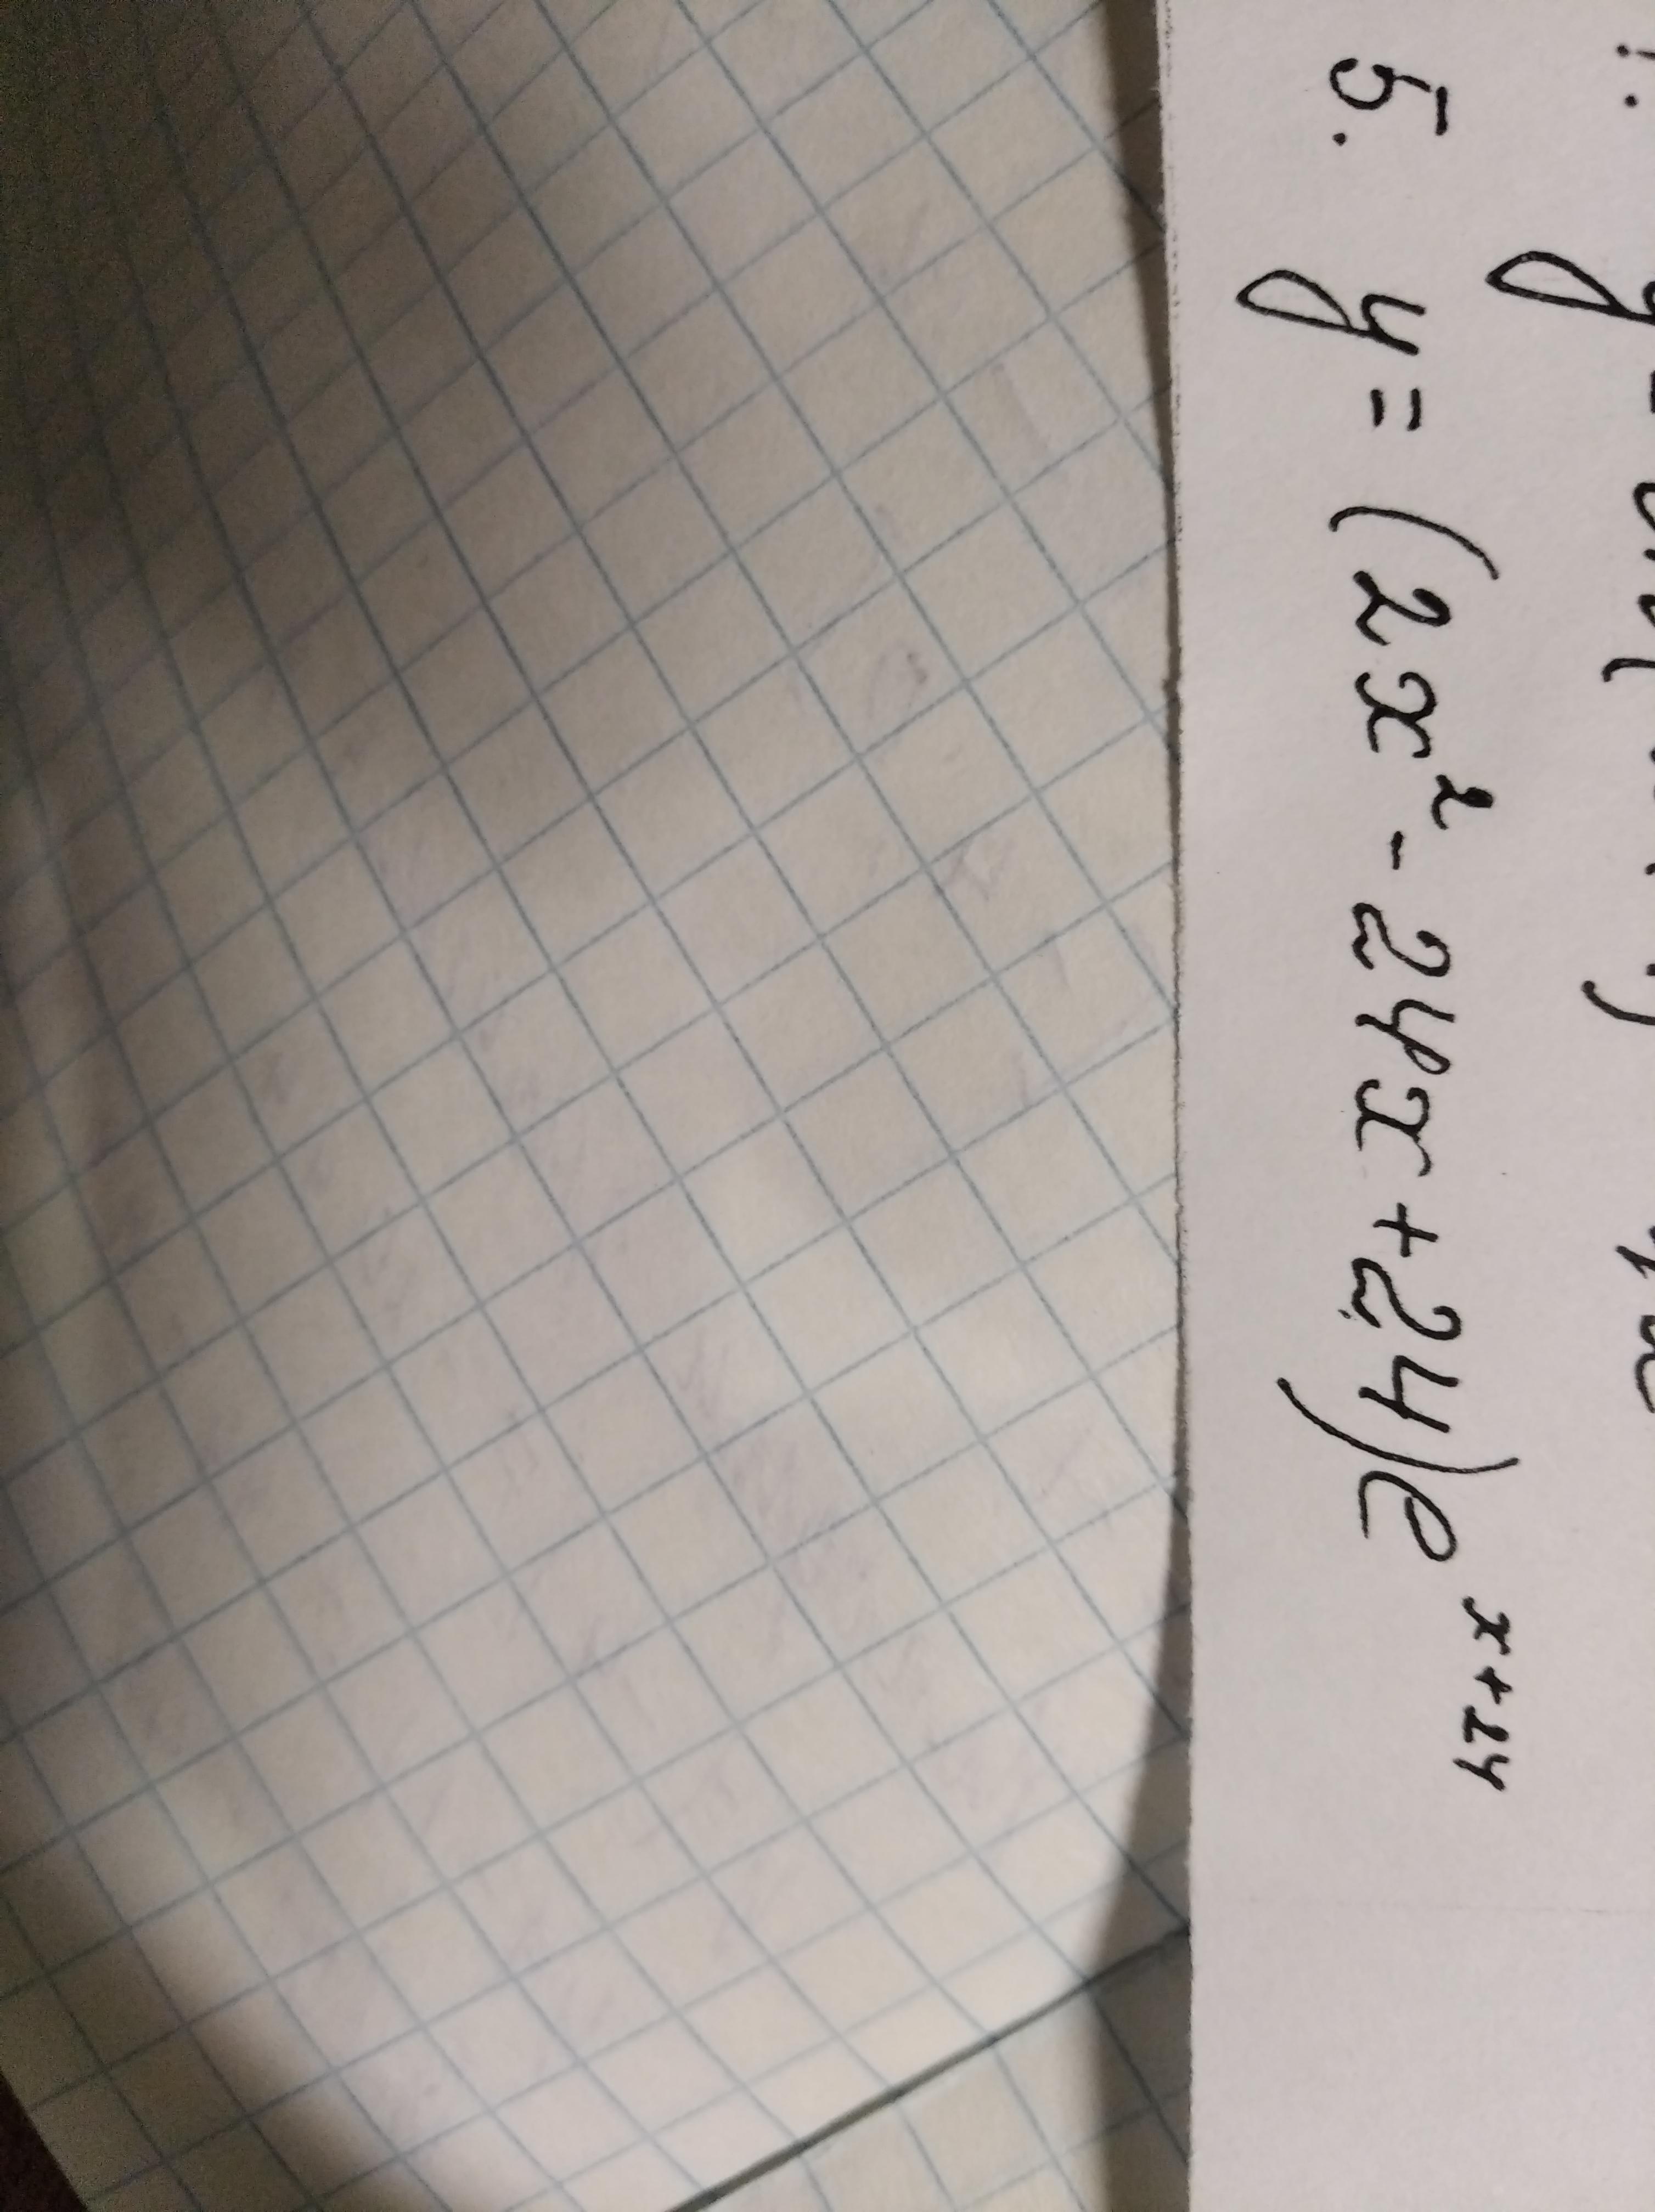 5. y = (2x² - 24x + 24)e^{x+24}